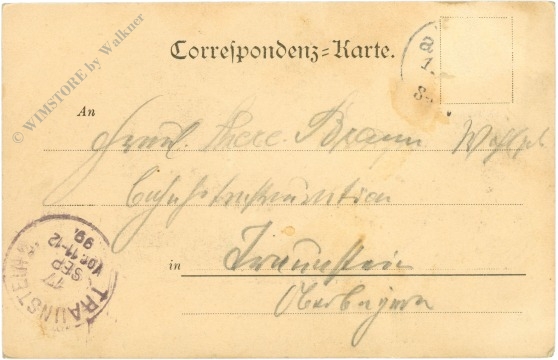 © WIMSTORE by Walkner
Correspondenz=Karte.
a
1
8
An
Braun
Bahnhofrestauration
in Traunstein
Oberbayern
TRAUNSTEIN
17
SEP
Vor. 11-12
99.